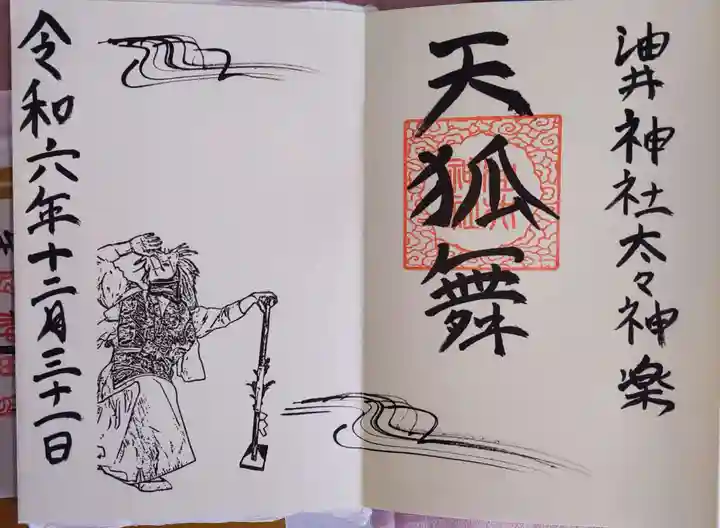 油井神社太々神楽
天狐舞
令和六年十二月三十一日